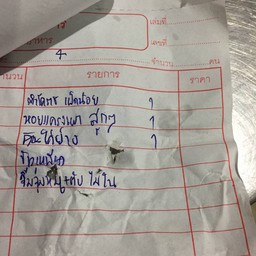 เล่มที่
อาหาร
4
เลขที่
จำนวน
คน
จำนวน
รายการ
ราคา
ผัดไทย เผ็ดน้อย 1
หอยแครงเผา สุกๆ 1
คอหมูย่าง 1
ข้าวเหนียว
จิ้มจุ่มหมู+ตับ ไม่ใน